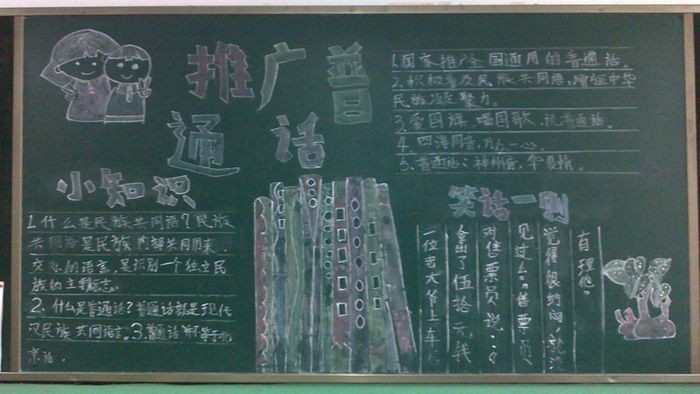 推广普
通话
1.国家推广全国通用的普通话。
2.积极普及民族共同语,增强中华
民族凝聚力。
3.爱国旗,唱国歌,说普通话。
4.四海同音,万众一心。
5.普通话:神州音,华夏情。
小知识
1.什么是民族共同语?民族
共同语是民族内部共同用来
交际的语言,是识别一个独立民
族的主要标志。
2、什么是普通话?普通话就是现代
汉民族共同语言。3.普通话不等于北
京话。
笑话一则
一位老大爷上车
拿出了伍拾元钱
对售票员说:"
见过么。售票员
觉得很
有理他。